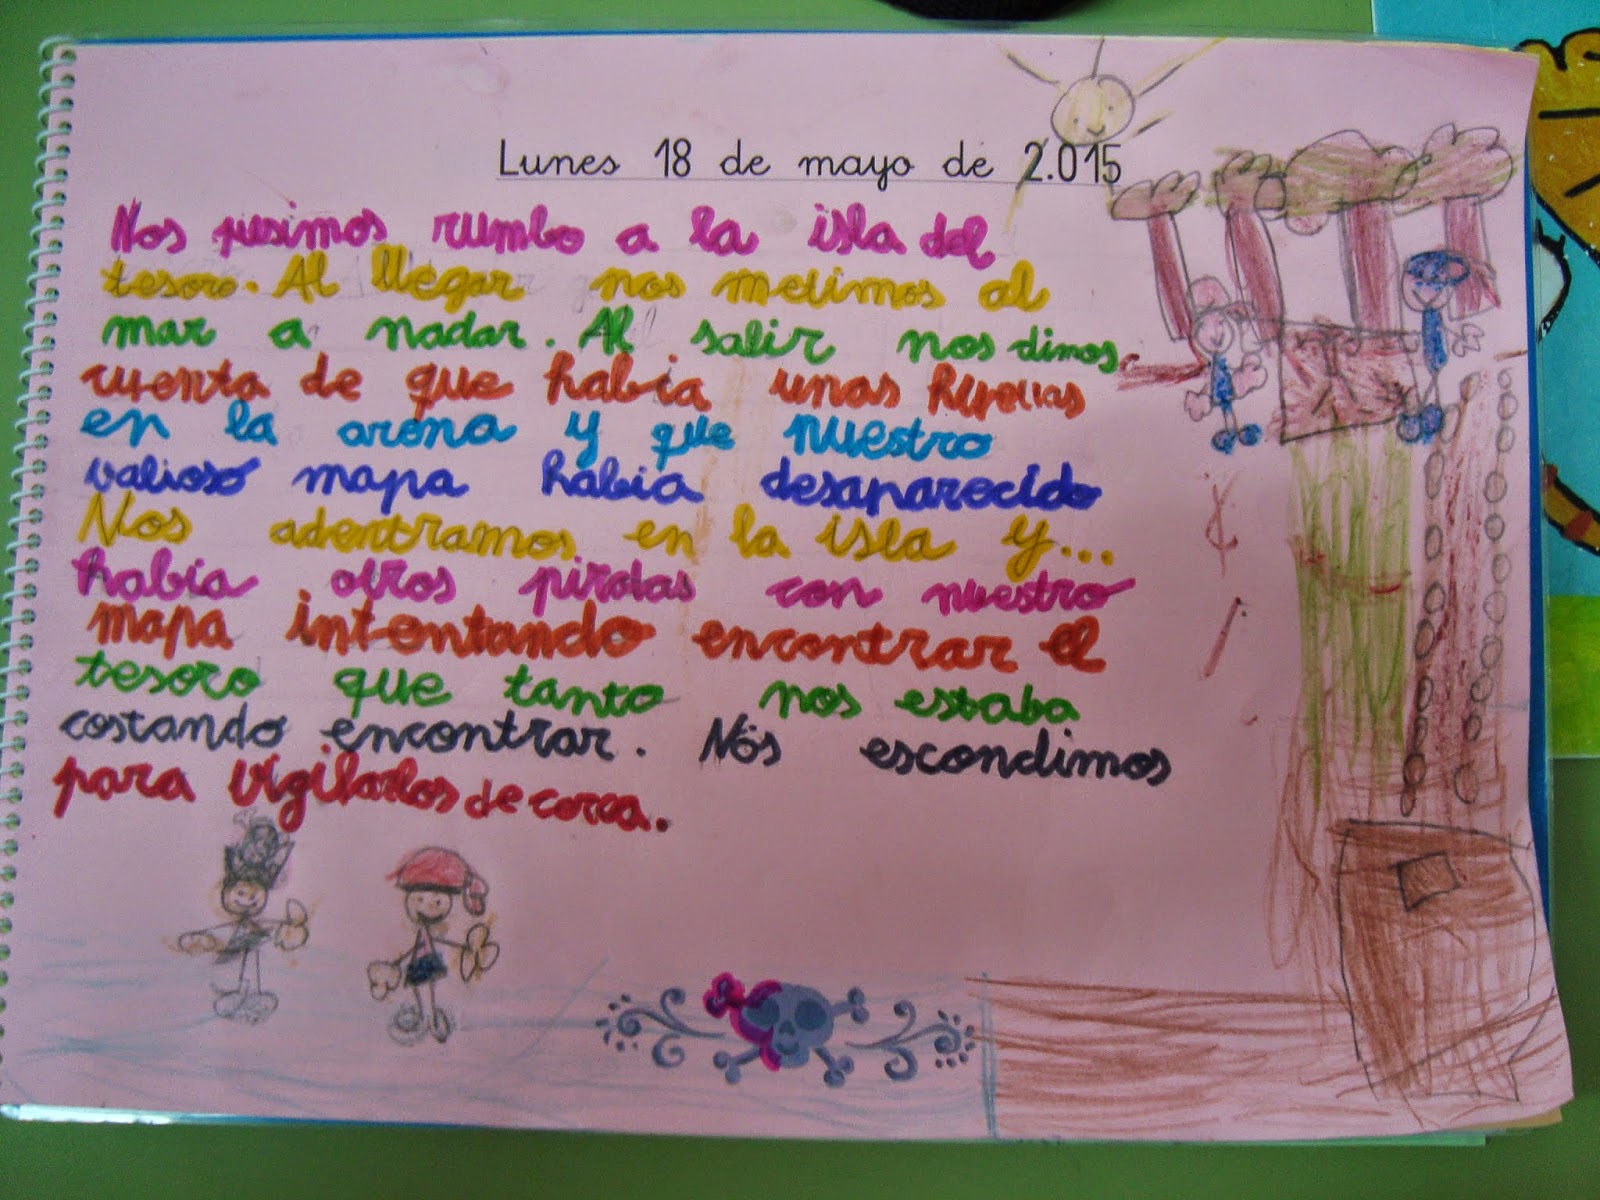 Lunes 18 de mayo de 2.015
Nos pusimos rumbo a la isla del
tesoro. Al llegar nos metimos al
mar a nadar. Al salir nos dimos
cuenta de que había unas huellas
en la arena y que nuestro
valioso mapa había desaparecido
Nos adentramos en la isla y...
había otros piratas con nuestro
mapa intentando encontrar el
tesoro que tanto nos estaba
costando encontrar. Nos escondimos
para vigilarlos de cerca.